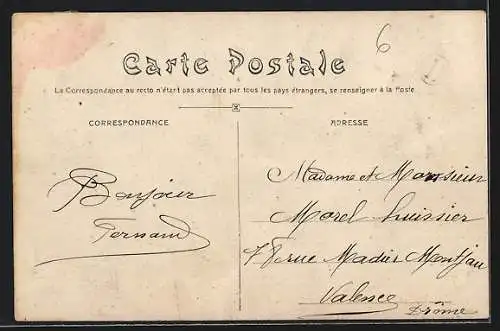 6
Carte Postale
La Correspondance au recto n'étant pas acceptée par tous les pays étrangers, se renseigner à la Poste
CORRESPONDANCE
ADRESSE
Bonjour
Fernand
Madame et Monsieur
Morel huissier
rue Madier Montjau
Valence
Drôme